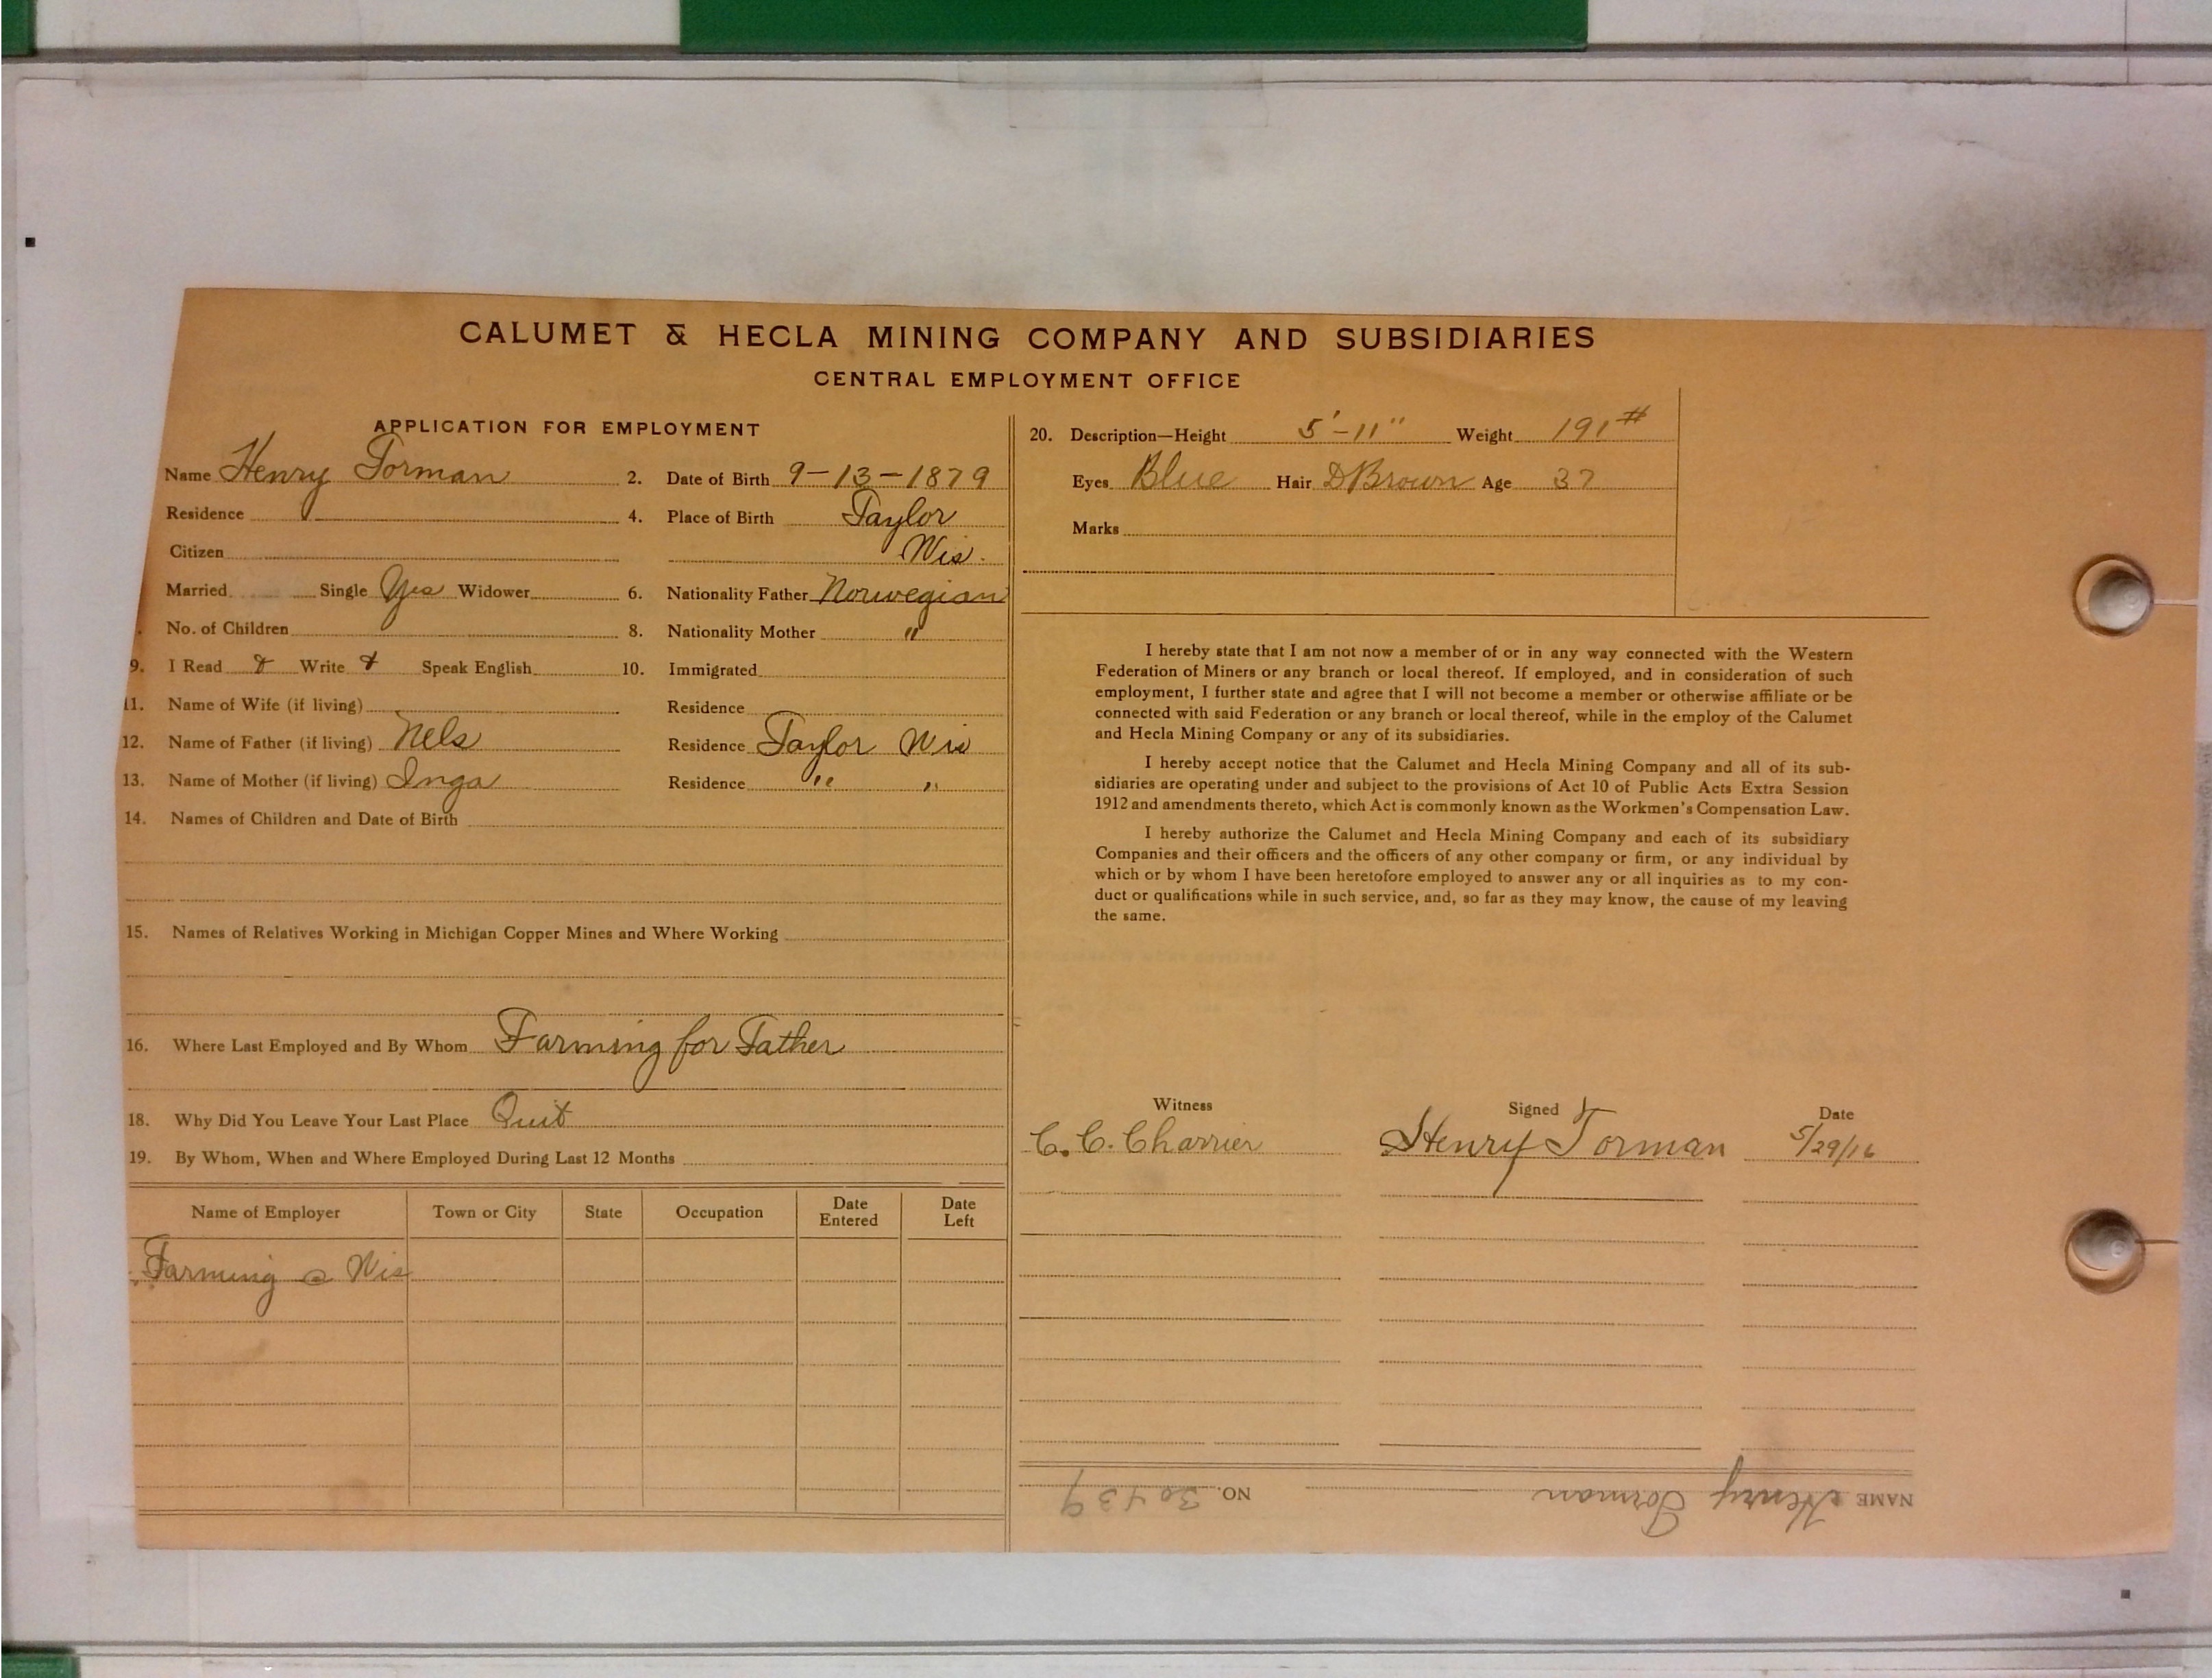 CALUMET & HECLA MINING COMPANY AND SUBSIDIARIES
CENTRAL EMPLOYMENT OFFICE
APPLICATION FOR EMPLOYMENT
Name Henry Torman 2. Date of Birth 9-13-1879
Residence 4. Place of Birth Taylor
Citizen Wis.
Married Single Yes Widower 6. Nationality Father Norwegian
No. of Children 8. Nationality Mother "
9. I Read & Write & Speak English 10. Immigrated
11. Name of Wife (if living) Residence
12. Name of Father (if living) Nels Residence Taylor Wis
13. Name of Mother (if living) Inga Residence " "
14. Names of Children and Date of Birth
15. Names of Relatives Working in Michigan Copper Mines and Where Working
16. Where Last Employed and By Whom Farming for Father
18. Why Did You Leave Your Last Place Quit
19. By Whom, When and Where Employed During Last 12 Months
Name of Employer Town or City State Occupation Date Entered Date Left
Farming @ Wis
20. Description—Height 5'-11" Weight 191#
Eyes Blue Hair D Brown Age 37
Marks
I hereby state that I am not now a member of or in any way connected with the Western
Federation of Miners or any branch or local thereof. If employed, and in consideration of such
employment, I further state and agree that I will not become a member or otherwise affiliate or be
connected with said Federation or any branch or local thereof, while in the employ of the Calumet
and Hecla Mining Company or any of its subsidiaries.
I hereby accept notice that the Calumet and Hecla Mining Company and all of its sub-
sidiaries are operating under and subject to the provisions of Act 10 of Public Acts Extra Session
1912 and amendments thereto, which Act is commonly known as the Workmen's Compensation Law.
I hereby authorize the Calumet and Hecla Mining Company and each of its subsidiary
Companies and their officers and the officers of any other company or firm, or any individual by
which or by whom I have been heretofore employed to answer any or all inquiries as to my con-
duct or qualifications while in such service, and, so far as they may know, the cause of my leaving
the same.
Witness Signed Date
C. C. Charrier Henry Torman 5/29/16
NAME Henry Torman NO. 30439